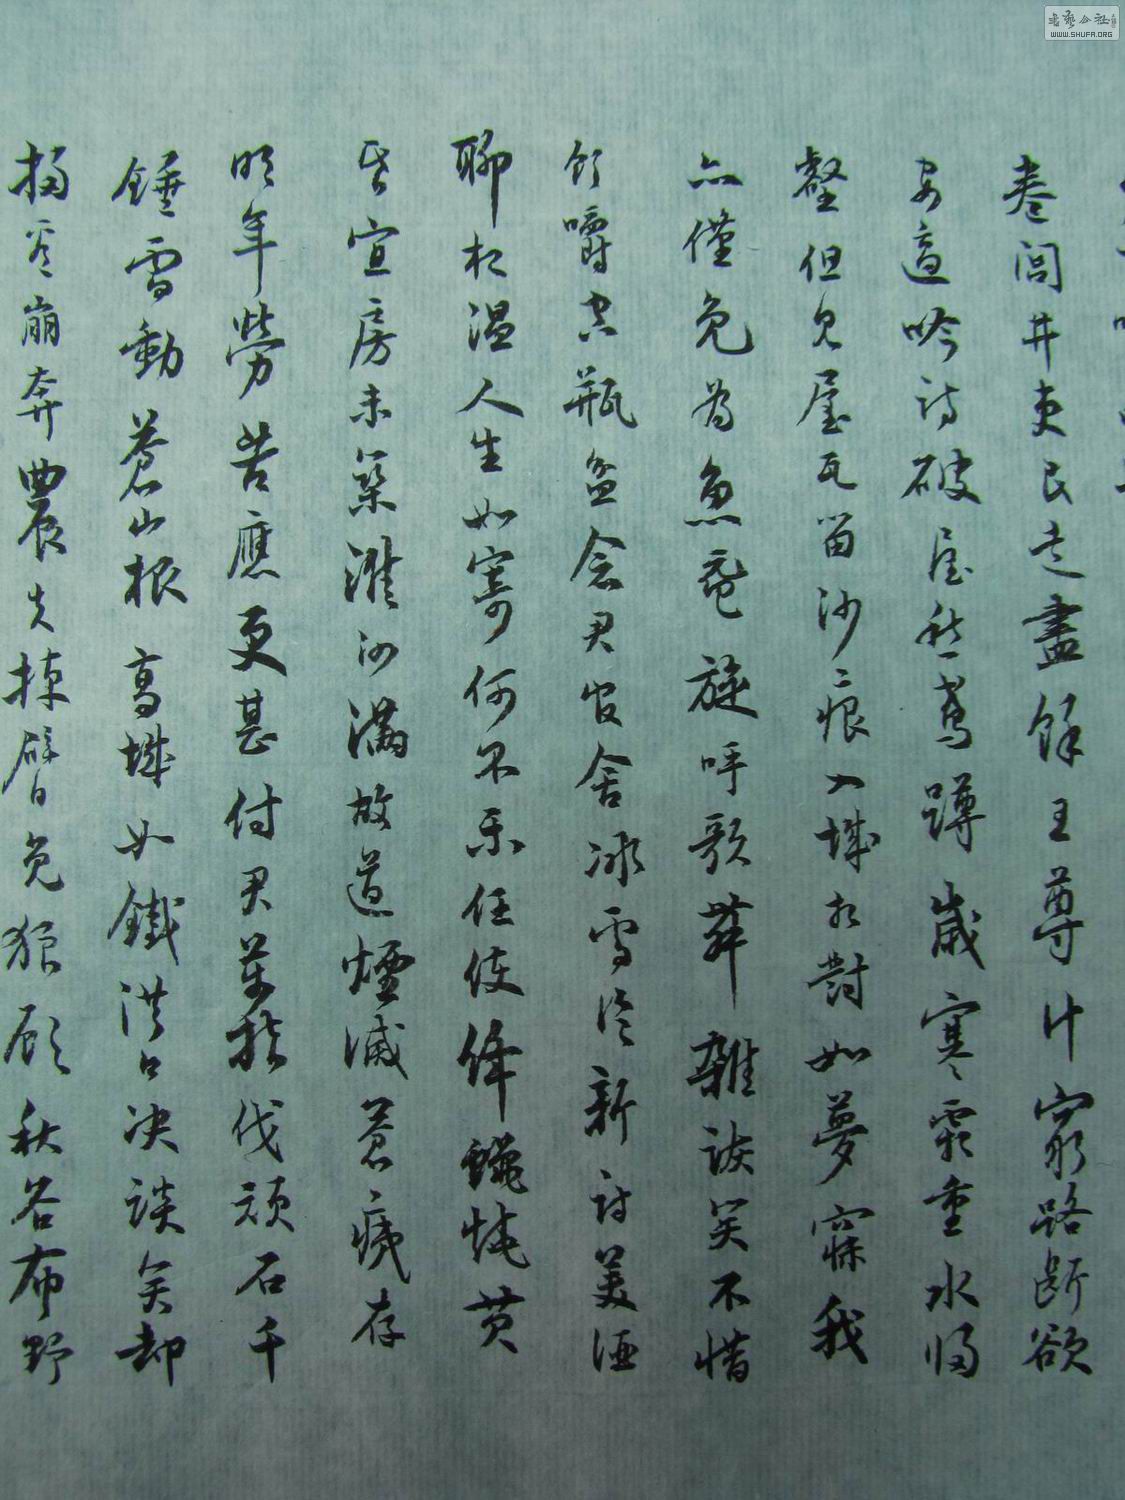 巷閭井吏民走盡餘王尊計窮路斷欲
安適吟詩破屋愁鳶蹲歲寒霜重水歸
壑但見屋瓦留沙痕入城相對如夢寐我
亦僅免為魚黿旋呼歌舞雜詼笑不惜
飲釂空瓶盆念君官舍冰雪冷新詩美酒
聊相溫人生如寄何不樂任使絳蠟燒黃
昏宣房未築淮泗滿故道堙滅瘡痍存
明年勞苦應更甚付君萬指伐頑石千
錘雷動蒼山根高城如鐵洪口決談笑却
掃看崩奔農夫掉臂免狼顧秋谷布野
WWW.SHUFA.ORG